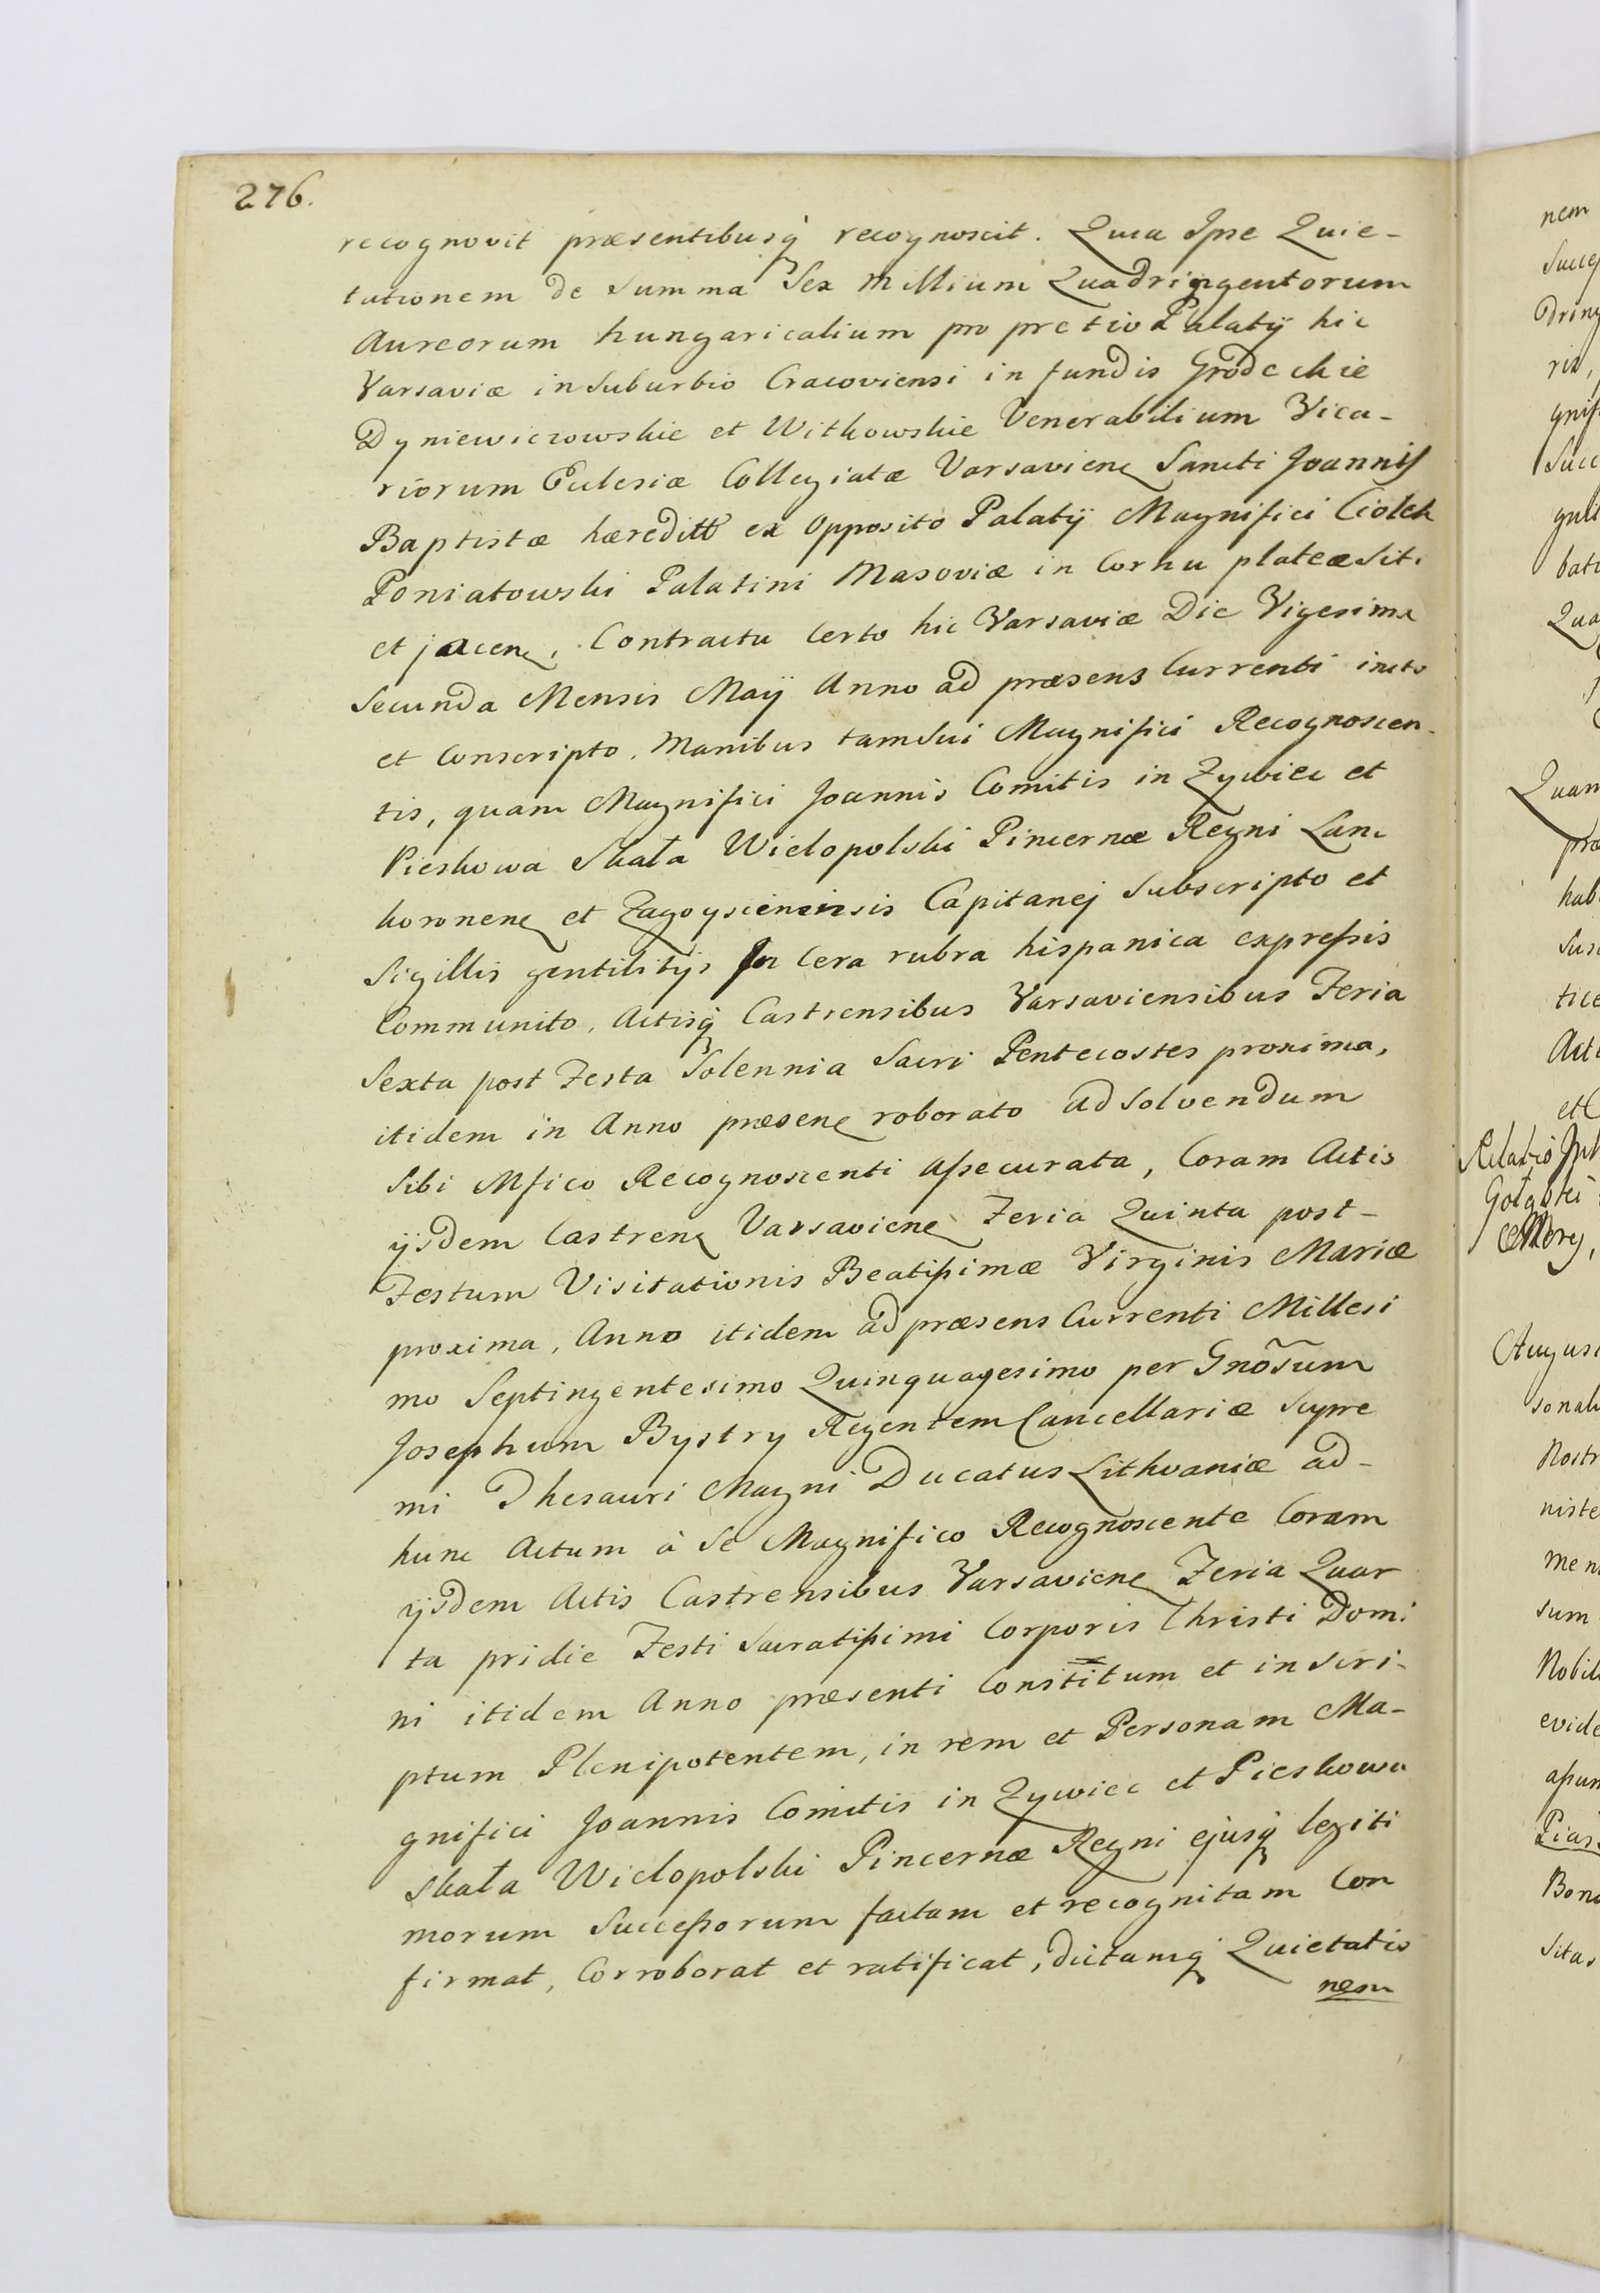 276.
recognovit præsentibusq́ recognoscit. Quia Ipse Quie-
tationem de Summa Sex Millium Quadringentorum
Aureorum hungaricalium pro pretio Palatÿ hic
Varsaviæ in Suburbio Cracoviensi in fundis Grodeckie
Dyniewiczowskie et Witkowskie Venerabilium Vica-
riorum Eclesiæ Collegiatæ Varsavieng Sancti Joannis
Baptistæ hæreditt ex opposito Palatÿ Magnifici Ciołek
Poniatowski Palatini Masoviæ in Cornu plateæ Sit.
et jaceng, Contractu Certo hic Varsaviæ Die Vigesima
Secunda Mensis Maÿ Anno ad præsens Currenti inito
et Conscripto, Manibus tam Sui Magnifici Recognoscen-
tis, quam Magnifici Joannis Comitis in Zywiec et
Pieskowa Skała Wielopolski Pincernæ Regni Lanc
koroneng et Zagoysciensis Capitanej Subscripto et
Sigillis gentilitÿs In Cera rubra hispanica expressis
Communito, Actisq́ Castrensibus Varsaviensibus Feria
Sexta post Festa Solennia Sacri Pentecostes proxima,
itidem in Anno præseng roborato ad Solvendum
Sibi Mfico Recognoscenti assecurata, Coram Actis
ÿsdem Castreng Varsavieng Feria Quinta post-
Festum Visitationis Beatissimæ Virginis Mariæ
proxima, Anno itidem ad præsens Currenti Millesi
mo Septingentesimo Quinquagesimo per Gnõsum
Josephum Bystry Regentem Cancellariæ Supre
mi Thesauri Magni Ducatus Lithvaniæ ad-
hunc Actum à Se Magnifico Recognoscente Coram
ÿsdem Actis Castrensibus Varsavieng Feria Quar
ta pridie Festi Sacratissimi Corporis Christi Domi
ni itidem Anno præsenti Constitum et inscri-
ptum Plenipotentem, in rem et Personam Ma-
gnifici Joannis Comitis in Zywiec et Pieskowa
Skała Wielopolski Pincernæ Regni ejusq́ legiti
morum Successorum factam et recognitam Con
firmat, Corroborat et ratificat, dictamq́ Quietatio
nem
nem
Quam
et
Nobil
Bon
Sitas